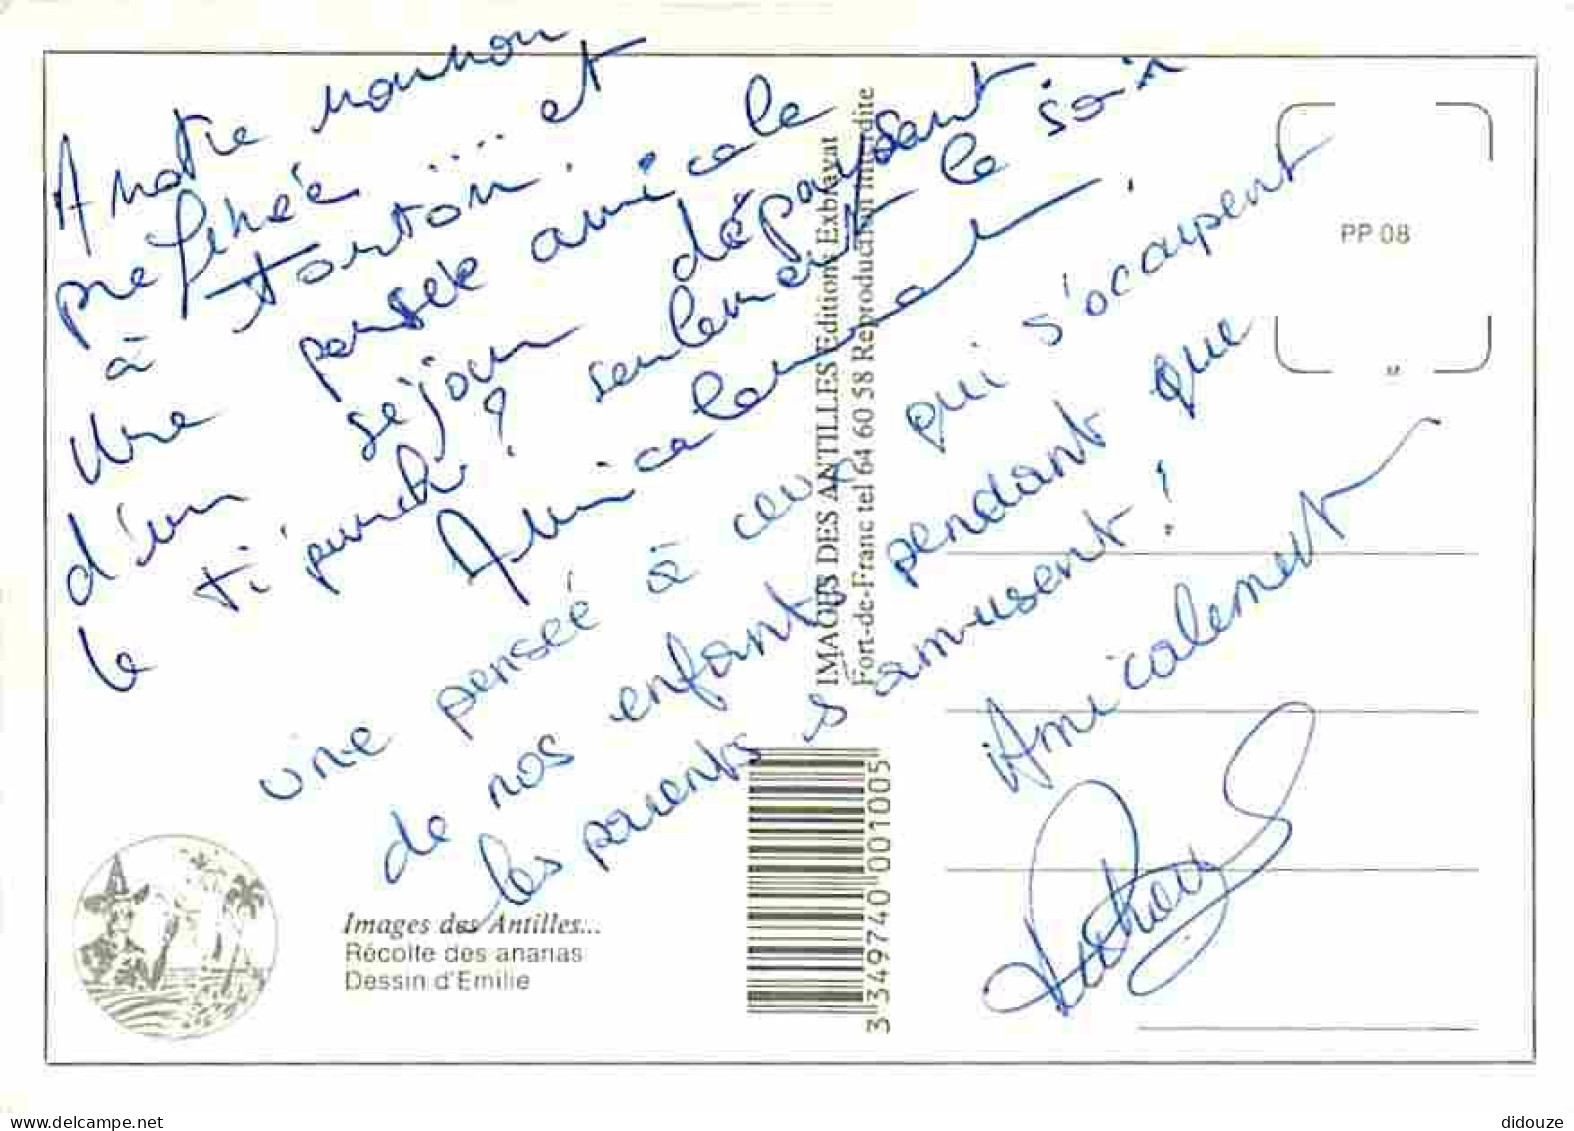 A notre nounou
préférée .... et
à tonton.
Une pensée amicale
d'un séjour dépaysant
le ti' punch ? seulement le soir
Amicalement
une pensée à ceux qui s'occupent
de nos enfants pendant que
les parents s'amusent !
Amicalement
PP 08
IMAGES DES ANTILLES Editions Exbrayat
Fort-de-Franc tel 64 60 58 Reproduction interdite
3 349740 001005
Images des Antilles...
Récolte des ananas
Dessin d'Emilie
delcampe.net
didouze